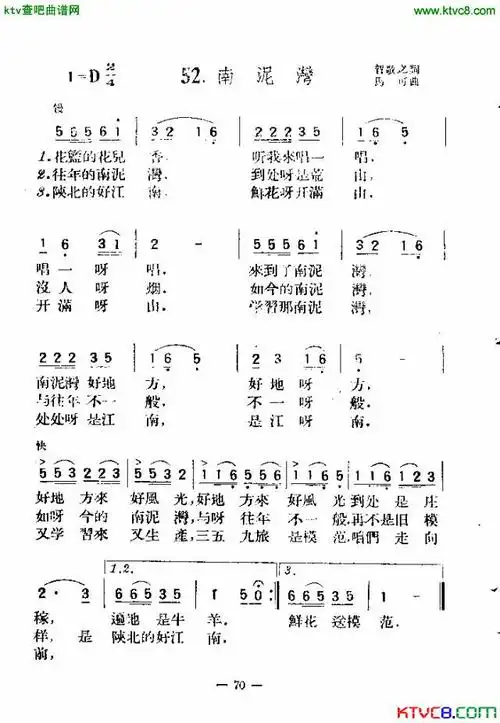 ktv查吧曲谱网
www.ktvc8.com
1=D 2/4
52.南泥灣
賀敬之詞
馬可曲
慢
5 6 5 6 1 | 3 2 1 6 | 3 2 3 5 1 | 1 6 5 |
1.花籃的花兒 香, 聽我來唱一 唱,
2.往年的南泥 灣, 到处呀是荒 山,
3.陝北的好江 南, 鮮花呀开滿 山,
1 6 3 1 | 2 - | 5 5 6 5 1 | 3 2 1 6 |
唱 一 呀 唱. 來到了南泥 灣,
沒 人 呀 烟. 如今的南泥 灣,
开 滿 呀 山. 学習那南泥 灣,
2 2 3 2 3 5 | 1 6 5 | 2 3 1 6 | 5 - |
南泥灣 好地 方, 好 地 呀 方,
与往年 不一 般, 不 一 呀 般.
处处呀 是江 南, 是 江 呀 南.
快
5 5 3 2 2 3 | 5 5 3 2 | 1 1 6 5 5 6 | 1 1 6 5 | 1 1 6 1 2 3 |
好地 方來 好風 光,好地 方來 好風 光 到处 是 庄
如呀 今的 南泥 灣,与呀 往年 不一 般,再不 是旧 模
又学 習來 又生 產,三五 九旅 是模 范,咱們 走向
1.2.
3.
2 · 3 | 6 6 5 3 5 | 1 - | 5 0 :| 6 6 5 3 5 | 1 - |
稼, 遍地 是牛 羊. 鮮花 送模 范.
样, 是 陝北的好江 南.
前,
— 70 —
KTVC8.com